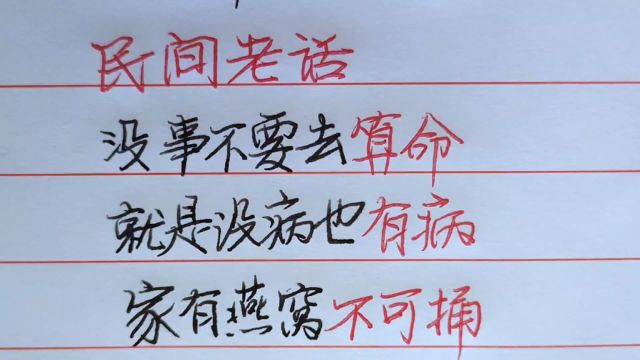 民间老话
没事不要去算命
就是没病也有病
家有燕窝不可捅